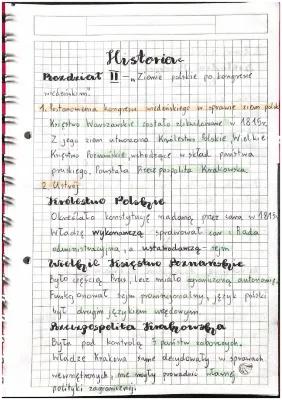 Historia
Rozdział II - „Ziemie polskie po kongresie
wiedeńskim".
1. Postanowienia kongresu wiedeńskiego w sprawie ziem polsk
Księstwo Warszawskie zostało zlikwidowane w 1815r.
Z jego ziem utworzono Królestwo Polskie, Wielkie
Księstwo Poznańskie, wchodzące w skład państwa
pruskiego. Powstała Rzeczpospolita Krakowska.
2. Ustrój
Królestwo Polskie
Określało konstytucję nadaną przez cara w 1815r
Władzę wykonawczą sprawował car i Rada
administracyjna, a ustawodawczą - sejm
Wielkie Księstwo Poznańskie
Było częścią Prus, lecz miało ograniczoną autonomię.
Funkcjonował sejm prowincjonalny, język polski
był drugim językiem urzędowym.
Rzeczpospolita Krakowska
Była pod kontrolą 3 państw zaborczych.
Władze Krakowa same decydowały w sprawach
wewnętrznych, nie mogły prowadzić własnej
polityki zagranicznej.